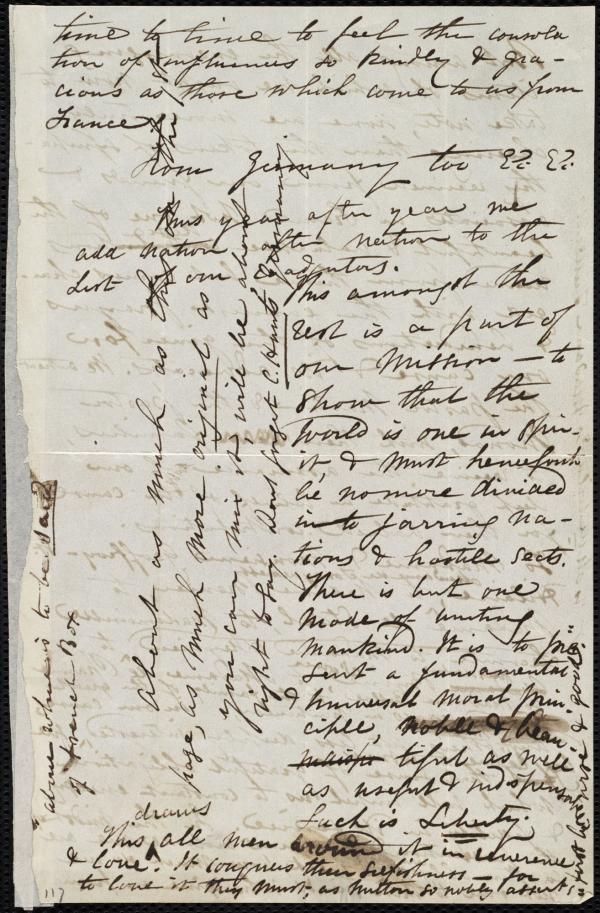 time to time to feel the consola
tion of influences so kindly & gra-
cious as those which come to us from
France.
From Germany too &c. &c.
Thus year after year we
add nation after nation to the
List of our adjutors.
This amongst the
rest is a part of
our Mission – to
show that the
world is one in spir-
it, & must henceforth
be no more divided
into jarring na-
tions & hostile sects.
There is but one
mode of uniting
mankind. It is to pre-
sent a fundamental
& universal moral prin-
ciple, noble & beau-
tiful as well
as useful & indispensable
Such is Liberty.
This draws all men around it in reverence
& love. It conquers their selfishness – for
to love it they must, as Hutton so nobly asserts
"first be wise & good."
About as much as the
page, as much more original as
you can mix it, will be about
right to say. Dont forget C. Hunts Germany
above where is to be said
of French Box
117